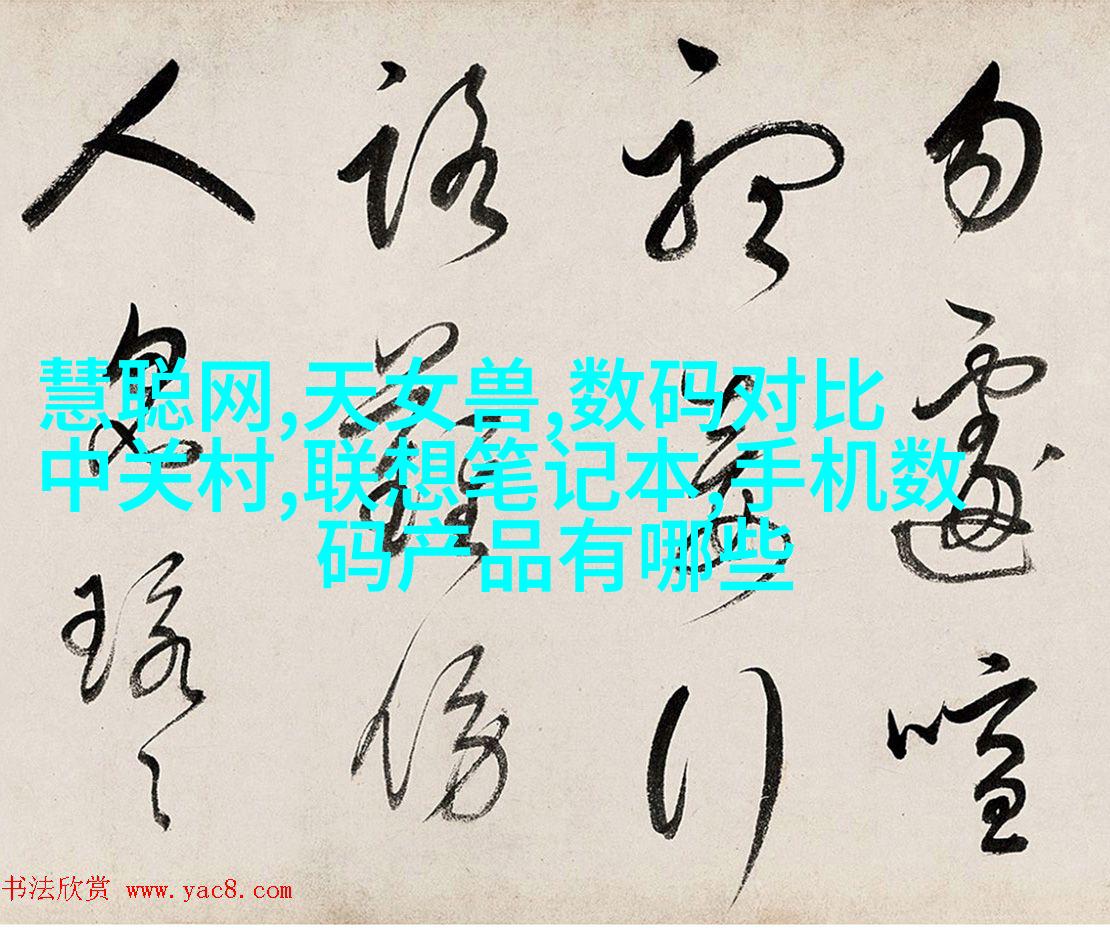 慧聪网,天女兽,数码对比
中关村,联想笔记本,手机数
码产品有哪些
勿遽喧
行
路難傍
人
书法欣赏 www.yac8.com